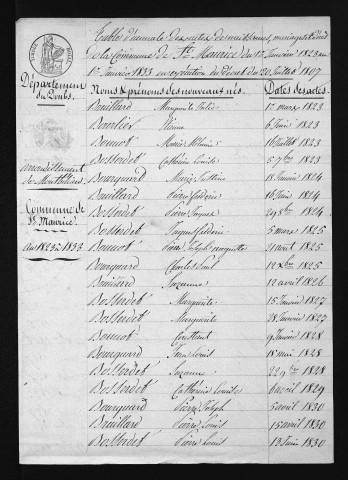 Table décennale des actes de naissances, mariages & décès
de la Commune de St. Maurice du 1er Janvier 1823 au
1er Janvier 1833 en exécution du décret du 20 Juillet 1807
Département
du Doubs.
arrondissement
de Montbéliard
Commune de
St. Maurice
An 1823 à 1833
Noms & prénoms des nouveaux nés. Dates des actes.
Bouillard Marguerite 1er mars 1823
Pierre 6 Juin 1823
Bouvot 16 Juillet 1823
Bosserdet Catherine Louise 5 7bre 1823
Bourquard 18 Janvier 1824
Bouillard Pierre Frédéric 16 Juin 1824
Bosserdet Pierre Jacques 1824
Bosserdet Jacques Frédéric 5 mars 1825
Bouvot Pierre Joseph 21 août 1825
Bourquard Charles Louis 12 Xbre 1825
Suzanne 12 avril 1826
Bosserdet Marguerite 15 Janvier 1827
Bosserdet Marguerite 28 Janvier 1827
Bouvot Constant 9 Janvier 1828
Bourquard Jean Louis 18 mai 1828
Bosserdet Suzanne 22 9bre 1828
Bosserdet Catherine Louise 6 avril 1829
Bourquard Pierre Joseph 5 avril 1830
Bouillard Pierre Louis 15 avril 1830
Bosserdet Pierre Louis 13 Juin 1830